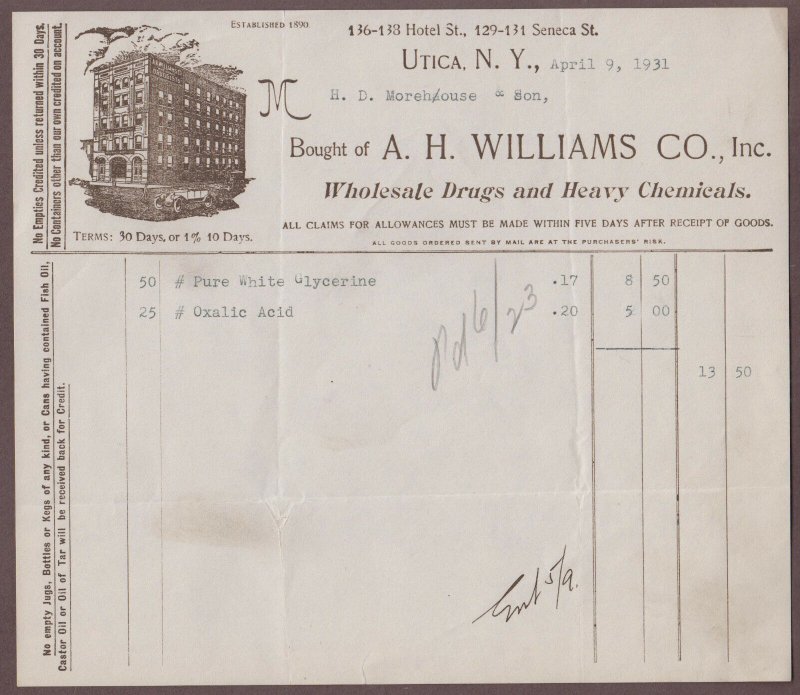 ESTABLISHED 1890
136-138 Hotel St., 129-131 Seneca St.
UTICA, N. Y., April 9, 1931
M H. D. Morehouse & Son,
Bought of A. H. WILLIAMS CO., Inc.
Wholesale Drugs and Heavy Chemicals.
ALL CLAIMS FOR ALLOWANCES MUST BE MADE WITHIN FIVE DAYS AFTER RECEIPT OF GOODS.
TERMS: 30 Days, or 1% 10 Days.
ALL GOODS ORDERED SENT BY MAIL ARE AT THE PURCHASERS' RISK.
No Empties Credited unless returned within 30 Days.
No Containers other than our own credited on account.
50 # Pure White Glycerine .17 8 50
25 # Oxalic Acid .20 5 00
13 50
Pd 6/23
Ent 5/9.
No empty Jugs, Bottles or Kegs of any kind, or Cans having contained Fish Oil,
Castor Oil or Oil of Tar will be received back for Credit.